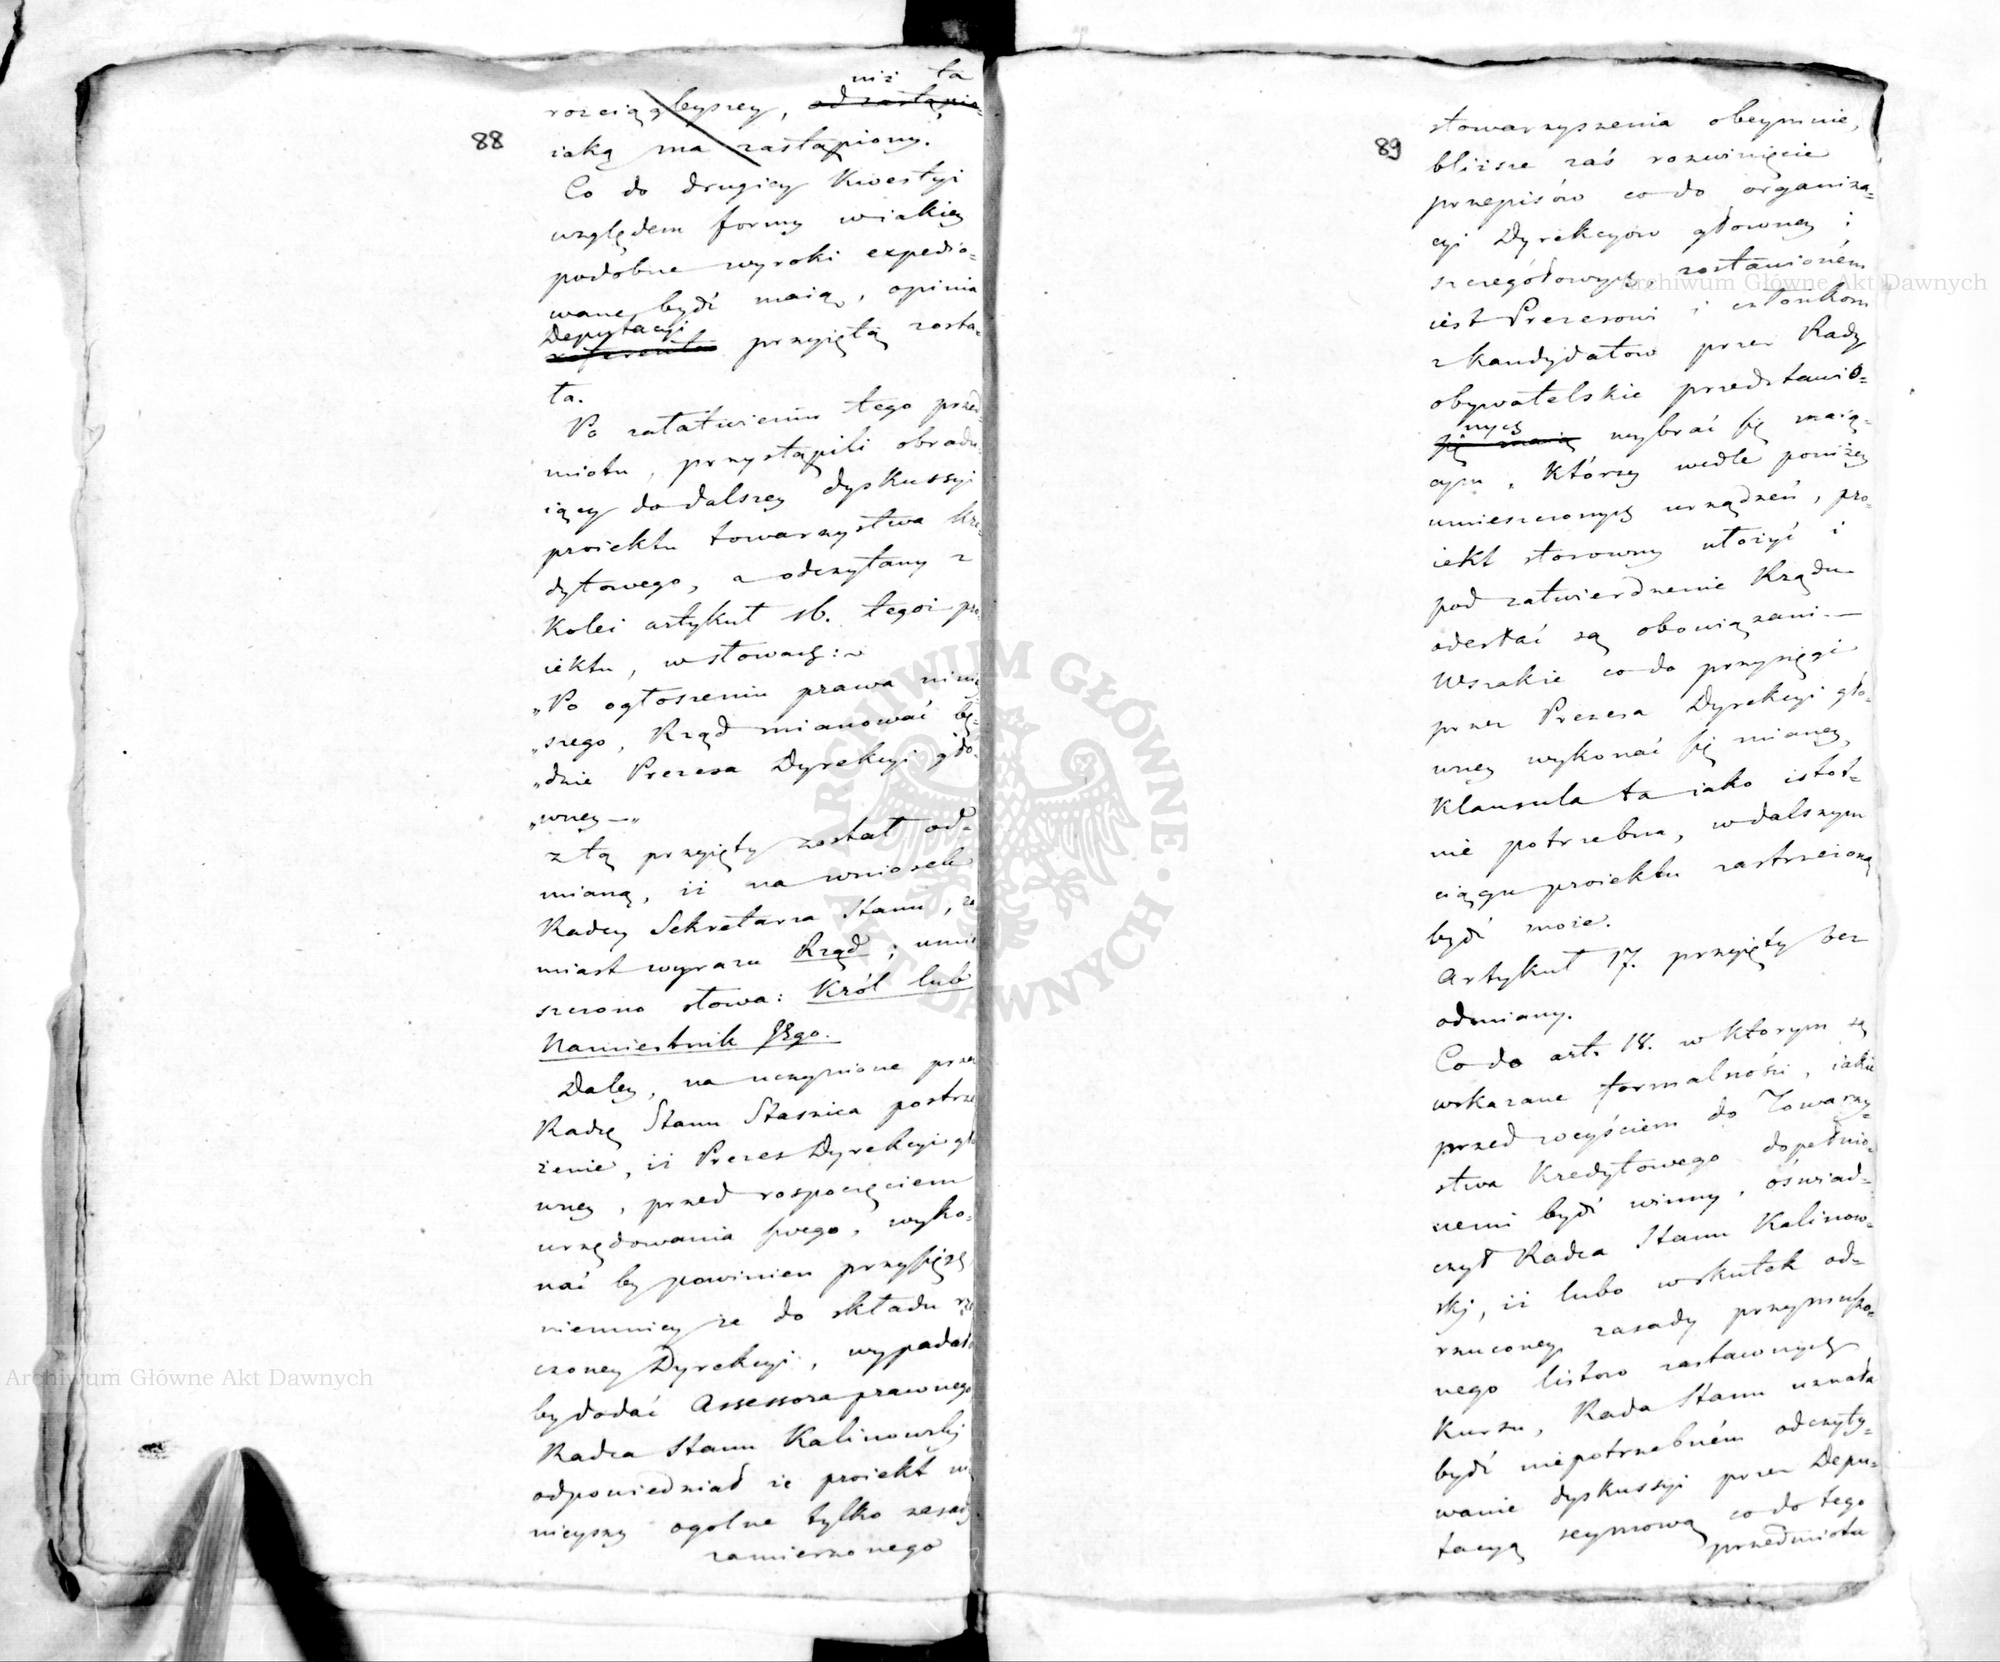 88
niż ta
rozciąglejszey, od zastąpie=
iaką ma zastąpiony.
Co do drugiey Kwestyi
względem formy w iakiey
podobne wyroki expedio=
wane bydź maią, opinia
Deputacyi
przyiętą zosta=
ła.
Po załatwieniu tego przed=
miotu, przystąpili obradu=
iący do dalszey dyskussyi
proiektu towarzystwa kre=
dytowego, a odczytany z
Kolei artykuł 16. tegoż pro=
iektu, w słowach:
„Po ogłoszeniu prawa ninie=
„szego, Rząd mianować bę=
„dzie Prezesa Dyrekcyi głó=
„wney —„
z tą przyięty został od=
mianą, iż na wniosek
Radcy Sekretarza Stanu, za=
miast wyrazu Rząd; umie=
szczono słowa: Król lub
Namiestnik Jego.
Daley, na uczynione przez
Radcę Stanu Staszica postrze=
żenie, iż Prezes Dyrekcyi głó=
wney, przed rozpoczęciem
urzędowania swego, wyko=
nać by powinien przysięgę,
niemniey że do składu rze=
czoney Dyrekcyi, wypadało
by dodać Assessora prawnego
Radca Stanu Kalinowski
odpowiedział że proiekt ni=
nieyszy ogólne tylko zasady
zamierzonego
89
stowarzyszenia obeymuie,
bliższe zaś rozwinięcie
przepisów co do organiza=
cyi Dyrekcyów główney i
szczegółowych, zostawioném
iest Prezesowi i członkom
z kandydatów przez Rady
obywatelskie przedstawio=
nych
się maią wybrać się maią=
cym, którzy wedle poniżey
umieszczonych urządzeń, pro=
iekt stosowny ułożyć i
pod zatwierdzenie Rządu
odesłać są obowiązani. —
Wszakże co do przysięgi
przez Prezesa Dyrekcyi głó=
wney wykonać się mianey,
Klauzula ta iako istot=
nie potrzebna, w dalszym
ciągu proiektu zastrzeżoną
bydź może.
Artykuł 17. przyięty bez
odmiany.
Co do art. 18. w którym są
wskazane formalności, iakie
przed weyściem do Towarzy=
stwa Kredytowego dopełnio=
nemi bydź winny, oświad=
czył Radca Stanu Kalinow=
ski, iż lubo w skutek od=
rzuconey zasady przymuszo=
nego listów zastawnych
Kursu, Rada Stanu uznała
bydź niepotrzebném odczyty=
wanie dyskussyi przez Depu=
tacyą seymową co do tego
przedmiotu
Archiwum Główne Akt Dawnych
Archiwum Główne Akt Dawnych
ARCHIWUM GŁÓWNE AKT DAWNYCH